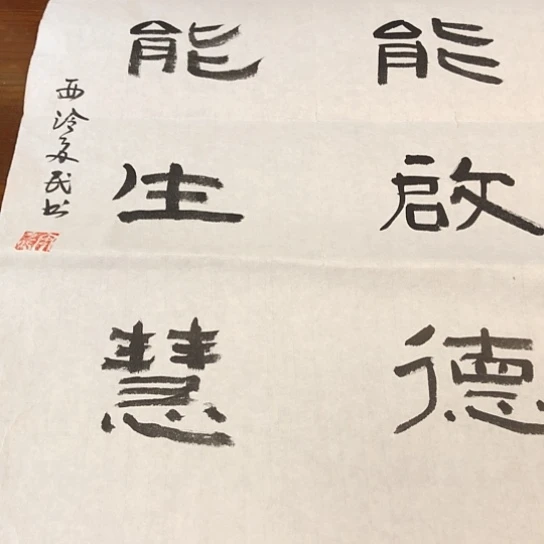 能啟德
能生慧
西泠民书